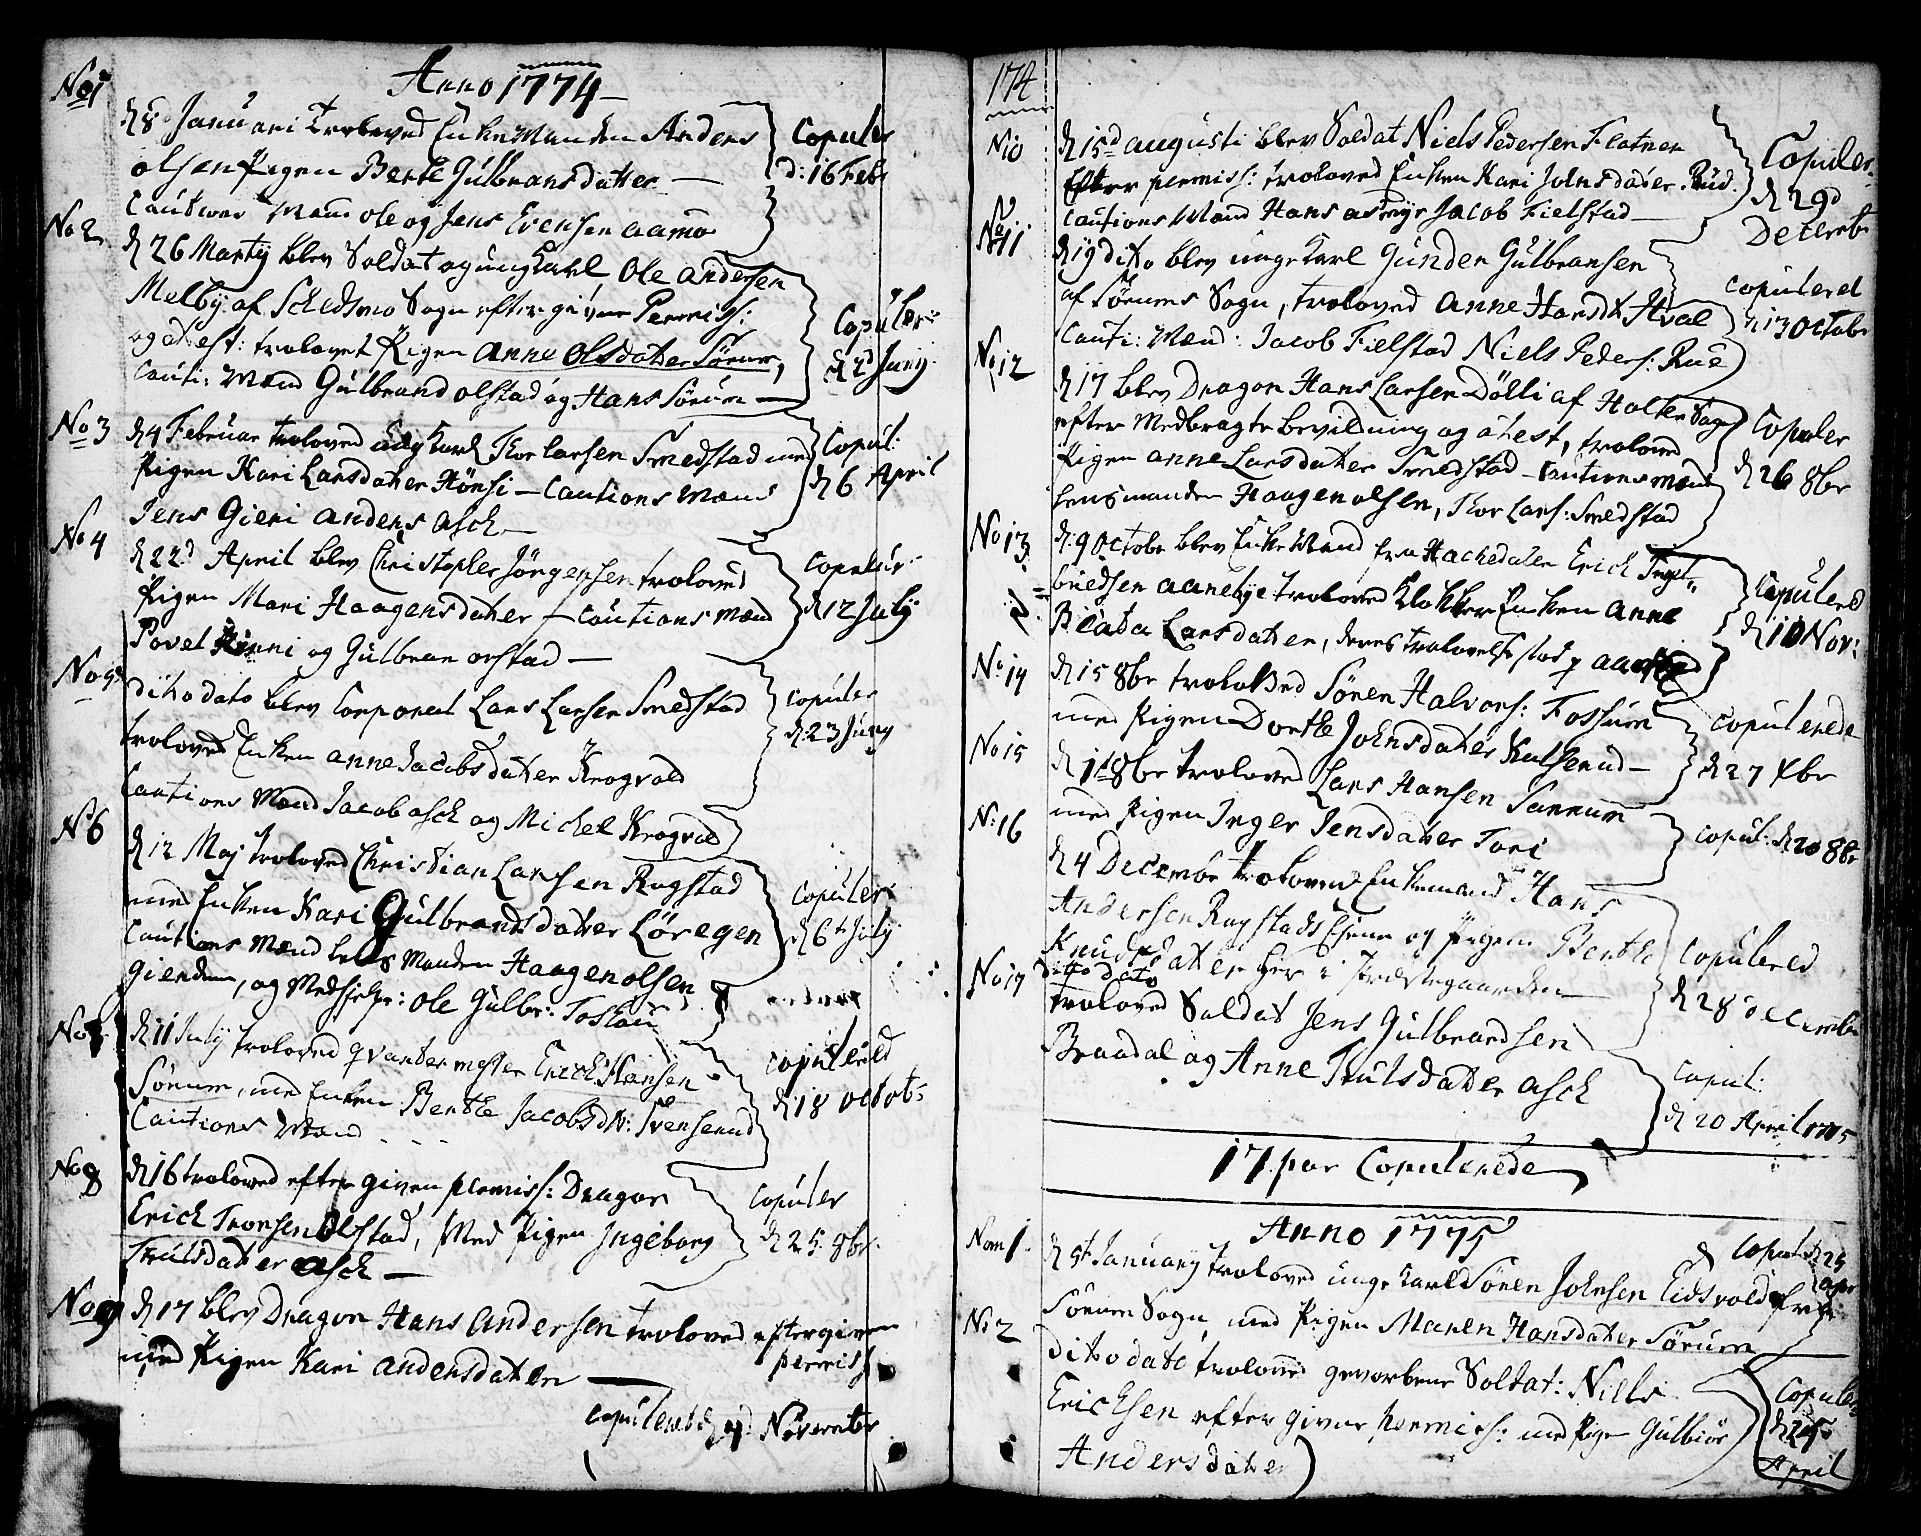 Anno 1774
No 1
d 8 Januari Troloved Enke Manden Anders
olsen Pigen Berte Gulbransdatter
Mænd ole og Jens Evensen aamo
Copuler
d: 16 Febr
No 2
d 26 Martij blev Soldat og ung Karl Ole andersen
Melby af Schedsmo Sogn efter given Permiss:
og atest: trolovet Pigen Anne Olsdatter Sørum,
Cauti: Mænd Gulbrand olstad og Hans Sørum
Copuler:
d 2d Junij
No 3
d 4 Februar troloved ung Karl Thor Larsen Smedstad med
Pigen Kari Larsdatter Hønsi – Cautions Mænd
Jens Gieri Anders Asch
Copul:
d 6 April
No 4
d 22d April blev Christopher Jörgensen troloved
Pigen Mari Haagensdatter – Cautions Mænd
Povel og Gulbran
Copulr:
d 12 July
No 5
dito dato blev Corporal Lars Larsen Smedstad
troloved Enken anne Jacobsdatter Krogvold
Cautions Mænd Jacob asch og Michel Krogvold
Copuler
d: 23 Juny
No 6
d 12 Maj troloved Christian Larsen Rugstad
med Enken Kari Gulbrandsdatter Löregen
Cautions Mænd lens Manden Haagen olsen
og Ole Gulbr:
Copuler:
d 6t July
No 7
d 11 July troloved qvartermester Erich Hansen
Sørum, med Enken Berthe Jacobsdtr: Svenserud
Cautions Mænd - - -
Copulered
d: 18 octob:
No 8
d 16 troloved efter given permiss: Dragon
Erich Tronsen Olstad, Med Pigen Ingeborg
Trulsdatter asch
Copuler
d 25 8br.
No 9
d 17 blev Dragon Hans Andersen troloved efter given
permiss
med Pigen Kari Andersdatter
Copulered d November
174
N 10
d 15d augusti blev Soldat Niels Pedersen Flatner
Efter permiss: troloved Enken Kari Johnsdatter Rud.
Cautions Mænd Hans asmyr Jacob Fielstad
Copuler
d 29d
Decemb
No 11
d 19 dito blev unge Karl Gunder Gulbransen
af Sørums Sogn, troloved Anne Hansdtr Hval
Cauti: Mænd: Jacob Fielstad Niels Peders: Rue
Copulered
d 13 Octobr
No 12
d 17 blev Dragon Hans Larsen Dölli af Holter Sogn
efter Medbragte bevildning og atest, troloved
Pigen anne Larsdatter Smedstad – Cautions mænd
lensmanden Haagen olsen, Thor Lars: Smedstad
Copuler
d 26 8br
No 13
d: 9 Octobr blev Enke Mand fra Hachedalen Erich Ingel-
bredsen aanebye troloved Klokker Enken Anne
Beata Larsdatter, deres trolovelse stod p
Copulered
d 10 Nov:
No 14
d 15 8br troloved Sören Halvors: Fossum
med Pigen Dorthe Johnsdatter
Copulerede
d 27 Xbr
No 15
d 8br troloved Lars Hansen Tannum
med Pigen Inger Jensdatter Tori
Copul: d 20 8br
N: 16
d 4 Decembr troloved Enkemand Hans
Andersen Rugstads og Pigen Berthe
Knudsdatter her i Præstegaarden
Copulered
d 28 Decembr
No 17
ditto dato
troloved Soldat Jens Gulbrandsen
Braadal og Anne Trulsdatter asch
Copul:
d 20 April 1775
17 par Copulerede
Anno 1775
Nom 1.
d January troloved unge Karl Sören Johnsen Eidsvold fra
Sørum Sogn med Pigen Maren Hansdatter Sørum
Copul d 25
Apr
No 2
dito dato troloved gevorbene Soldat: Niels
Erichsen efter given permiss: med Pigen Gulbiör
Andersdatter
Copuler
d 25
April